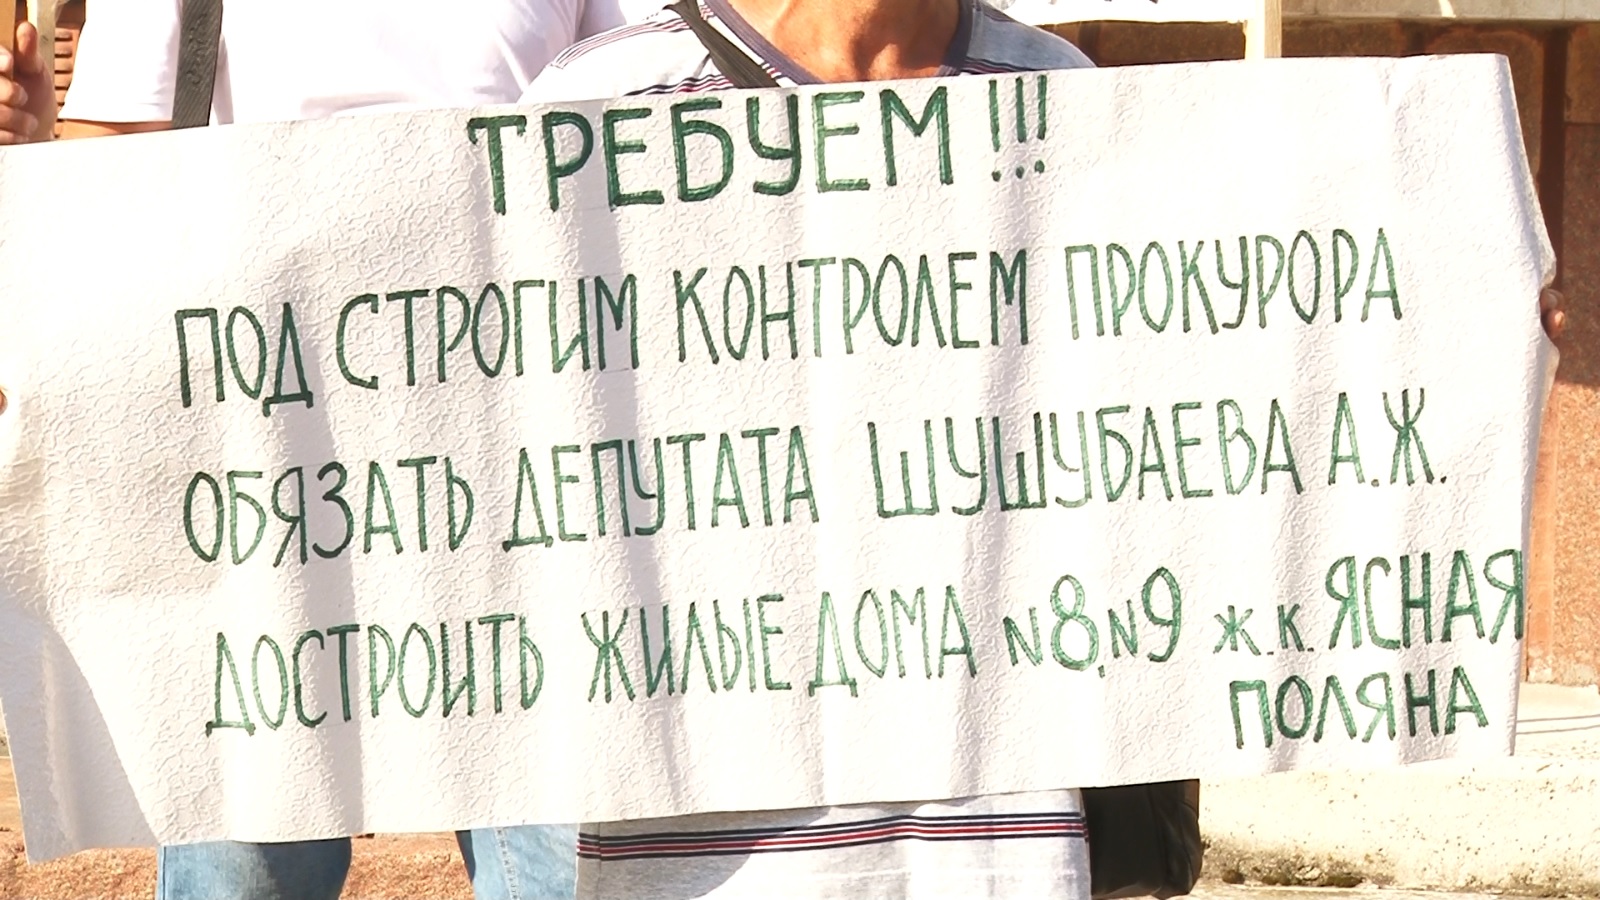 ТРЕБУЕМ!!!
ПОД СТРОГИМ КОНТРОЛЕМ ПРОКУРОРА
ОБЯЗАТЬ ДЕПУТАТА ШУШУБАЕВА А.Ж.
ДОСТРОИТЬ ЖИЛЫЕ ДОМА N8,N9 Ж.К. ЯСНАЯ
ПОЛЯНА